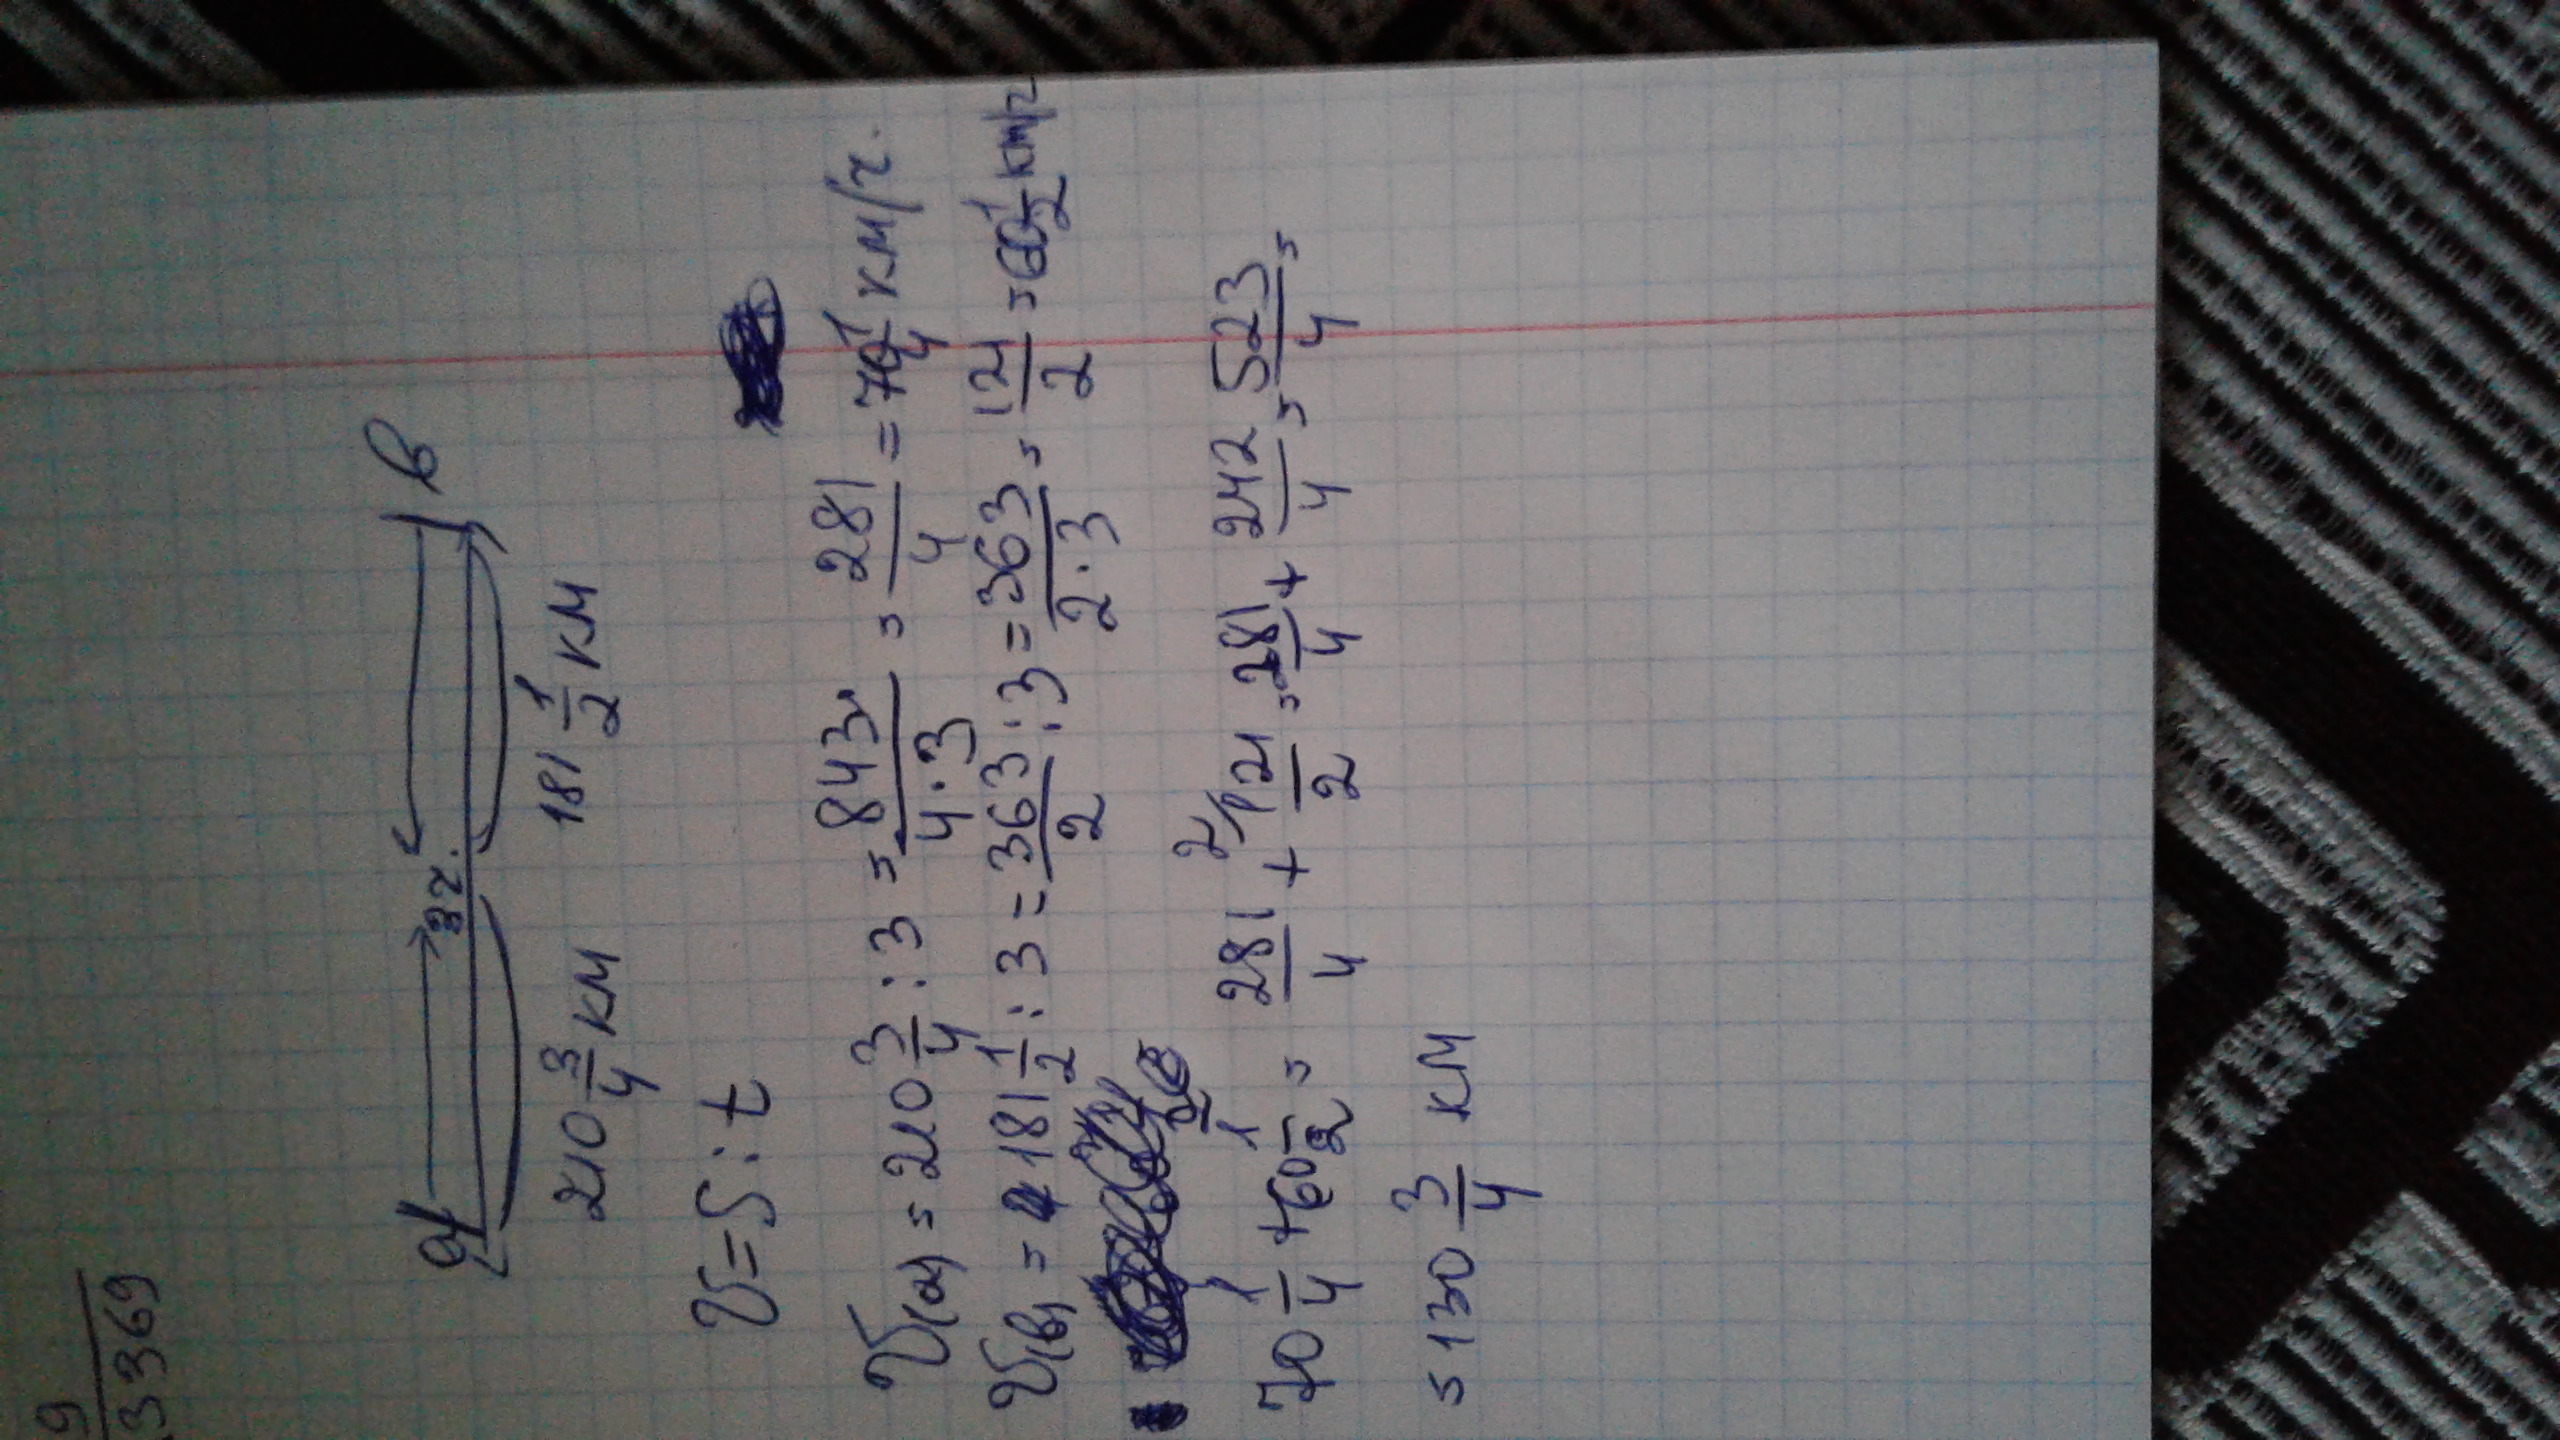 9
3369
a 3ч. b
210 3/4 км 181 1/2 км
V=S:t
V(a) = 210 3/4 : 3 = 843/4·3 = 281/4 = 70 1/4 км/ч.
V(b) = 181 1/2 : 3 = 363/2 : 3 = 363/2·3 = 121/2 = 60 1/2 км/ч
70 1/4 + 60 1/2 = 281/4 + 2/121/2 = 281/4 + 242/4 = 523/4 =
= 130 3/4 км